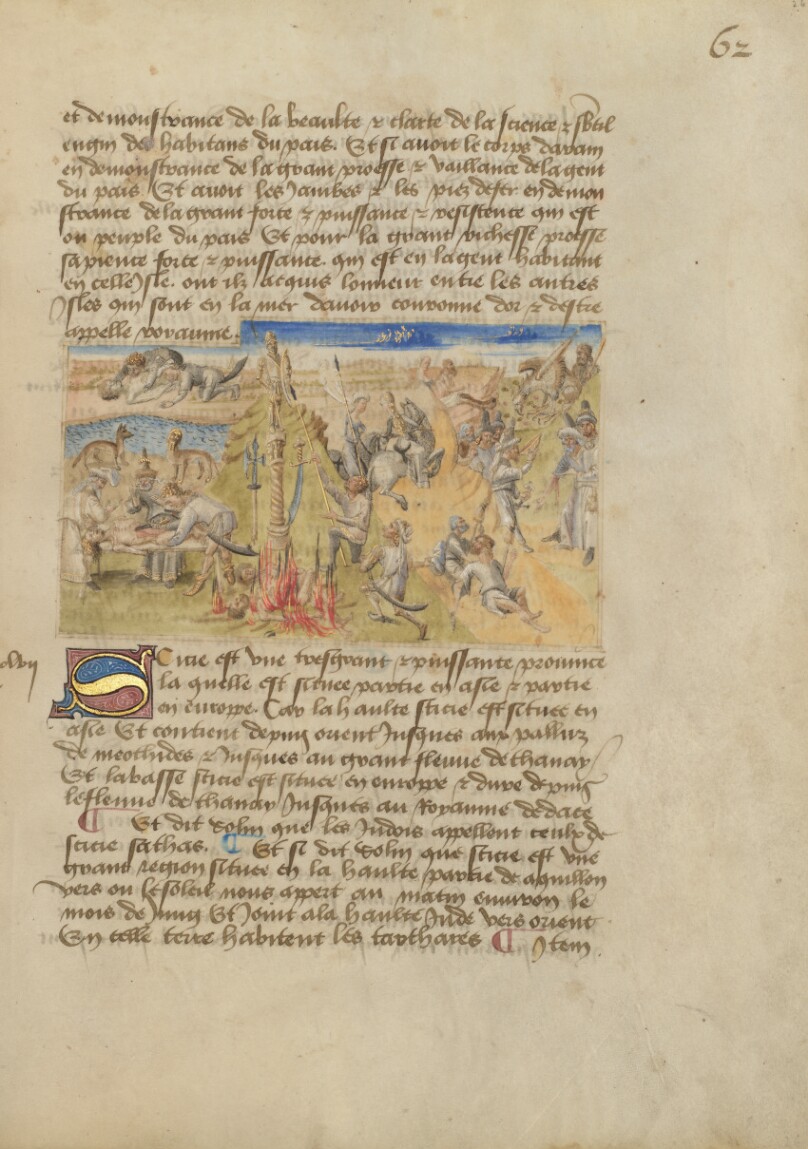 62
et demonstrance de la beaulte & clarte de la science & subtil
engin des habitans du pais. Et si avoit le corps darain
en demonstrance de la grant proesse & vaillance de la gent
du pais Et avoit les Jambes & les piez de fer en demon
strance de la grant force & puissance & resistence qui est
ou peuple du pais Et pour la grant richesse proesse
sapience force & puissance. qui est en la gent habitant
en celle Isle. ont ilz acquis lonneur entre les autres
Isles qui sont en la mer davoir couronne dor & destre
appelle royaume.
Sicie est une tresgrant & puissante province
la quelle est situee partie en asie & partie
en europpe. Car la haulte sicie est situee en
asie Et contient depuis orient Jusques aux palluz
de meothides & Jusques au grant fleuve de thanay
Et la basse sicie est situee en europpe & dure depuis
le fleuve de thanay Jusques au Royaume de dace
Et dit Solin que les Indois appellent ceulx de
sicie sathas. Et si dit Solin que sicie est une
grant region situee en la haulte partie de aquillon
vers ou le soleil nous appert au matin environ le
mois de Juing Et Joint a la haulte Inde vers orient
En celle terre habitent les tarthares Item